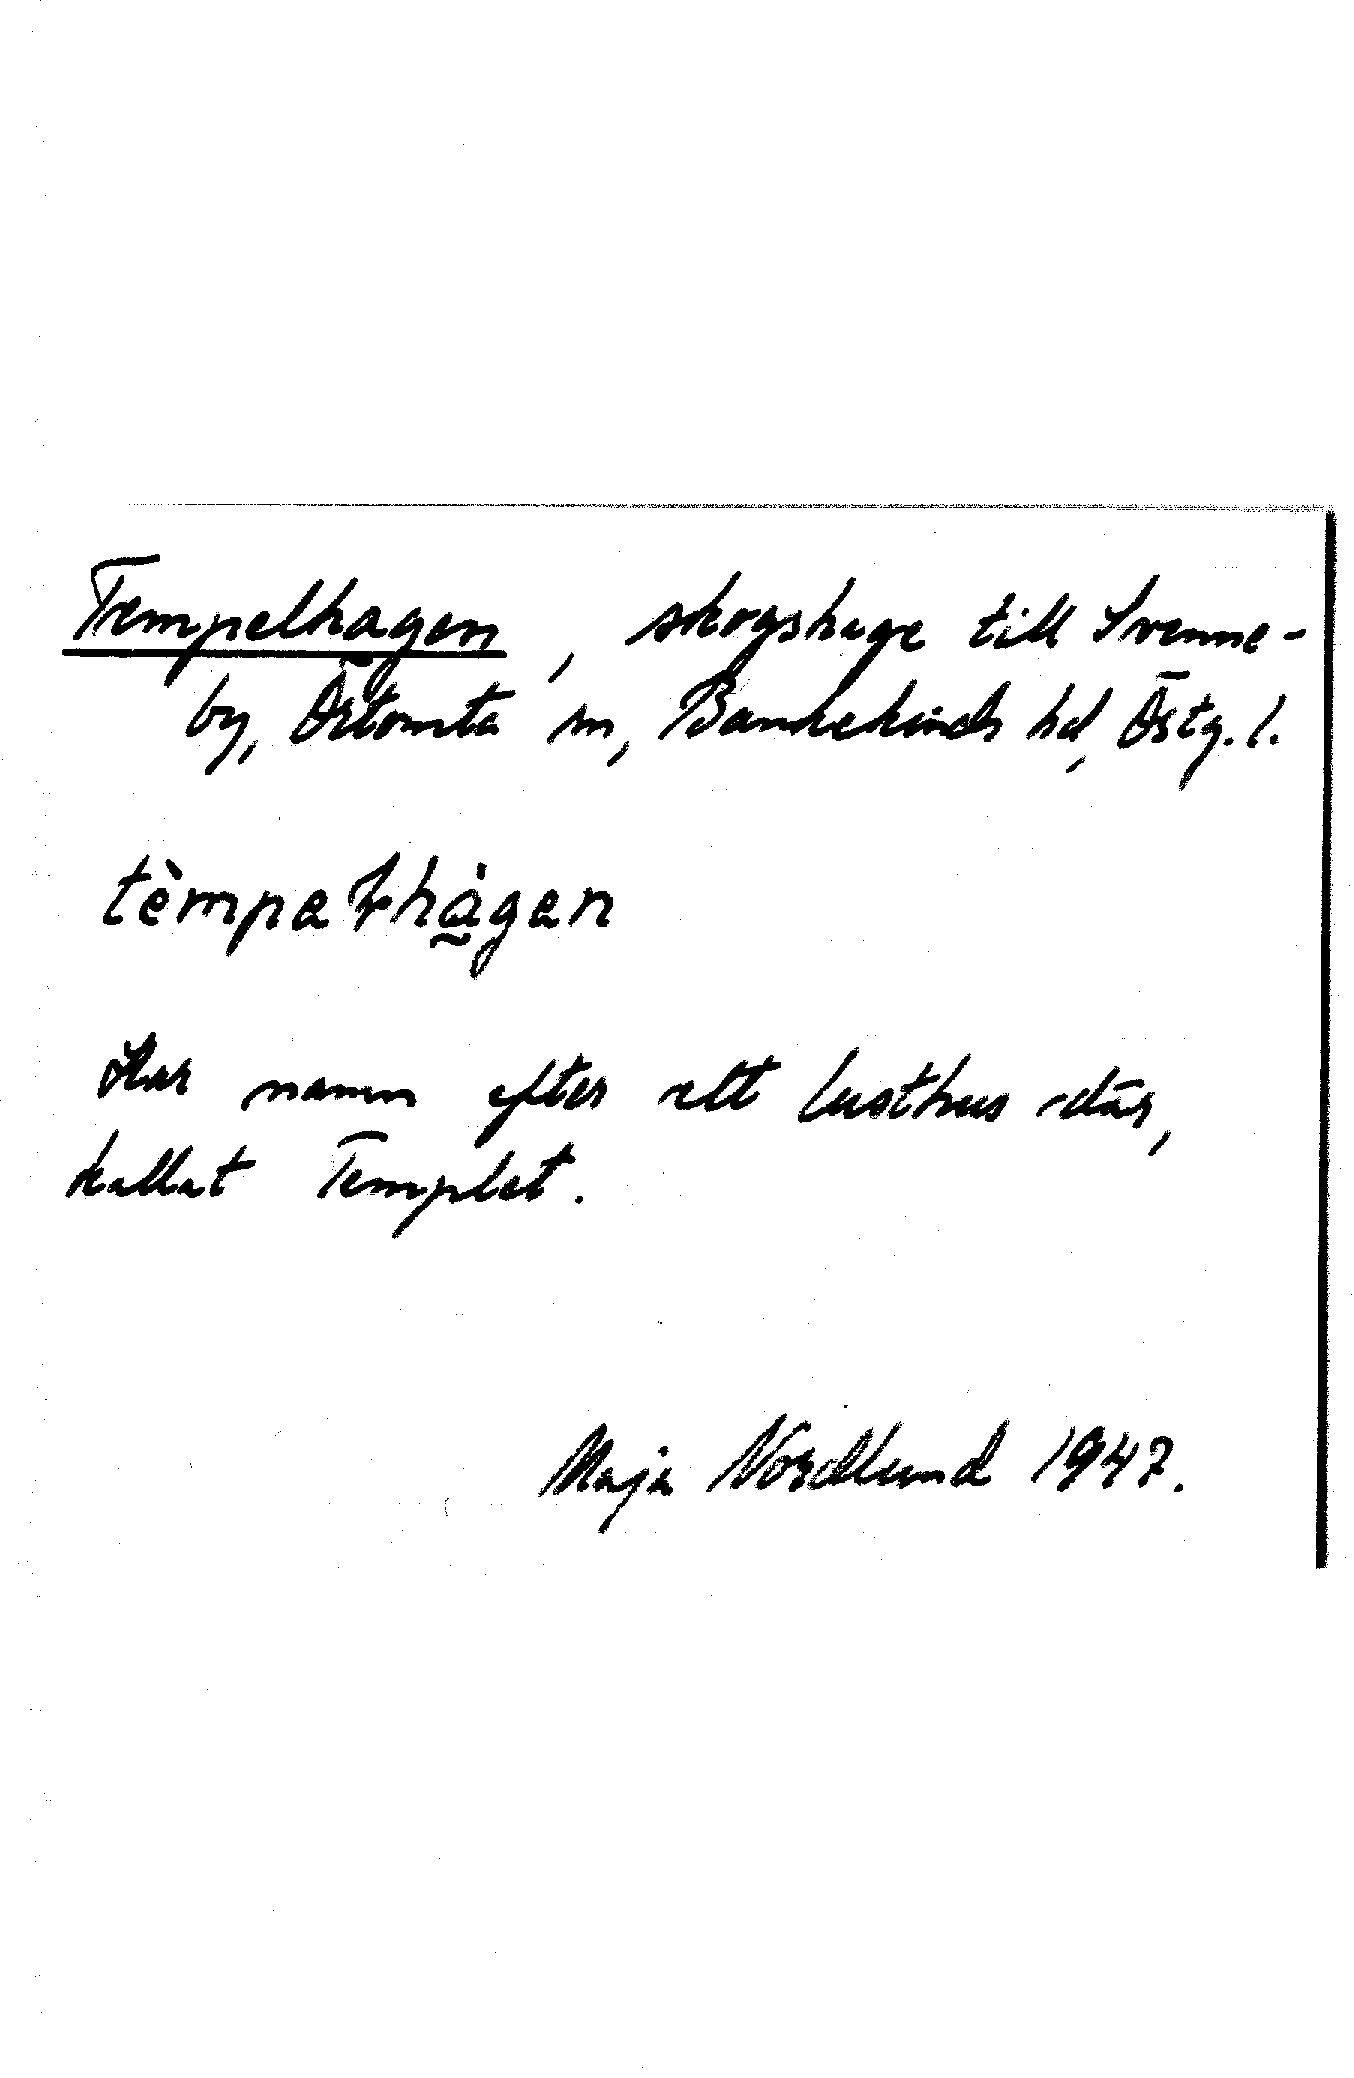 Tempelhagen, skogshage till Svenne-
by, Örtomta sn, Bankekinds hd, Östg. l.
tèmpeḷhàgen
Har namn efter ett lusthus där,
kallat Templet.
Maja Nordlund 1947.